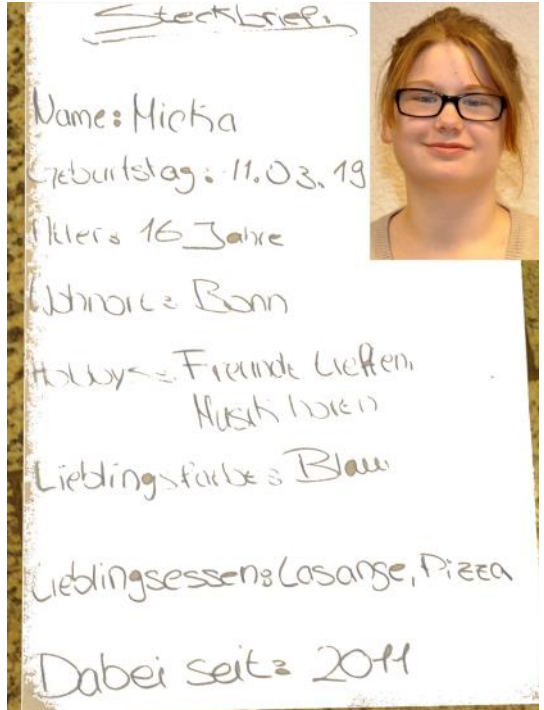 Steckbrief:
Name: Micha
Geburtstag: 11.03.19
Alter: 16 Jahre
Wohnort: Bonn
Hobbys: Freunde treffen,
Musik hören
Lieblingsfarbe: Blau
Lieblingsessen: Lasange, Pizza
Dabei seit: 2011